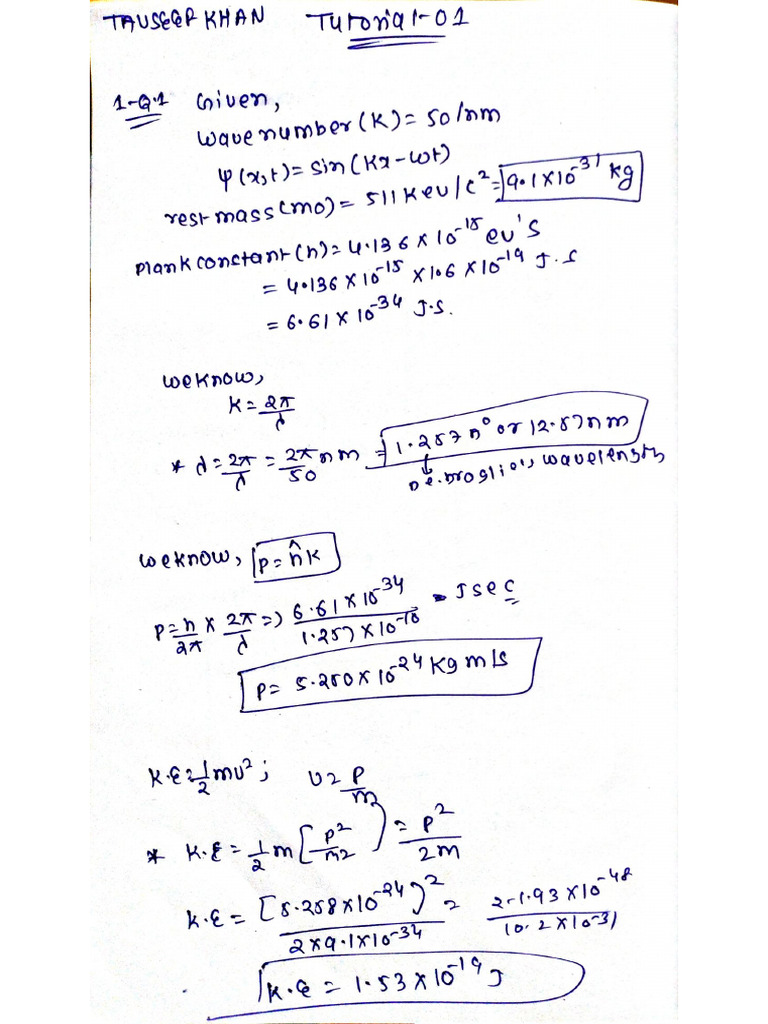 TAUSEEF KHAN Tutorial-01
1-Q.1 Given,
wavenumber(K)= 50/nm
ψ(x,t)= sin(Kx-wt)
rest mass(mo)= 511Kev/c²= 9.1×10⁻³¹ kg
plank constant(h)= 4.136 × 10⁻¹⁵ ev's
= 4.136 × 10⁻¹⁵ × 1.6 × 10⁻¹⁹ J.S
= 6.61 × 10⁻³⁴ J.S.
we know,
K = 2π/λ
* λ = 2π/λ = 2π/50 nm = 1.257 A° or 12.57nm
De-broglie's wavelength
we know, p = ħK
P = h/2π × 2π/λ => 6.61 × 10⁻³⁴/1.257 × 10⁻¹⁰ - Jsec
P = 5.250 × 10⁻²⁴ Kg m/s
K.E = 1/2 mv² ; v = P/m
* K.E = 1/2 m [P²/m2) = P²/2m
K.E = [5.258×10⁻²⁴)²/2×9.1×10⁻³⁴ = 2.1.93 ×10⁻⁴⁸/10.2×10⁻³¹
K.E = 1.53 × 10⁻¹⁹ J